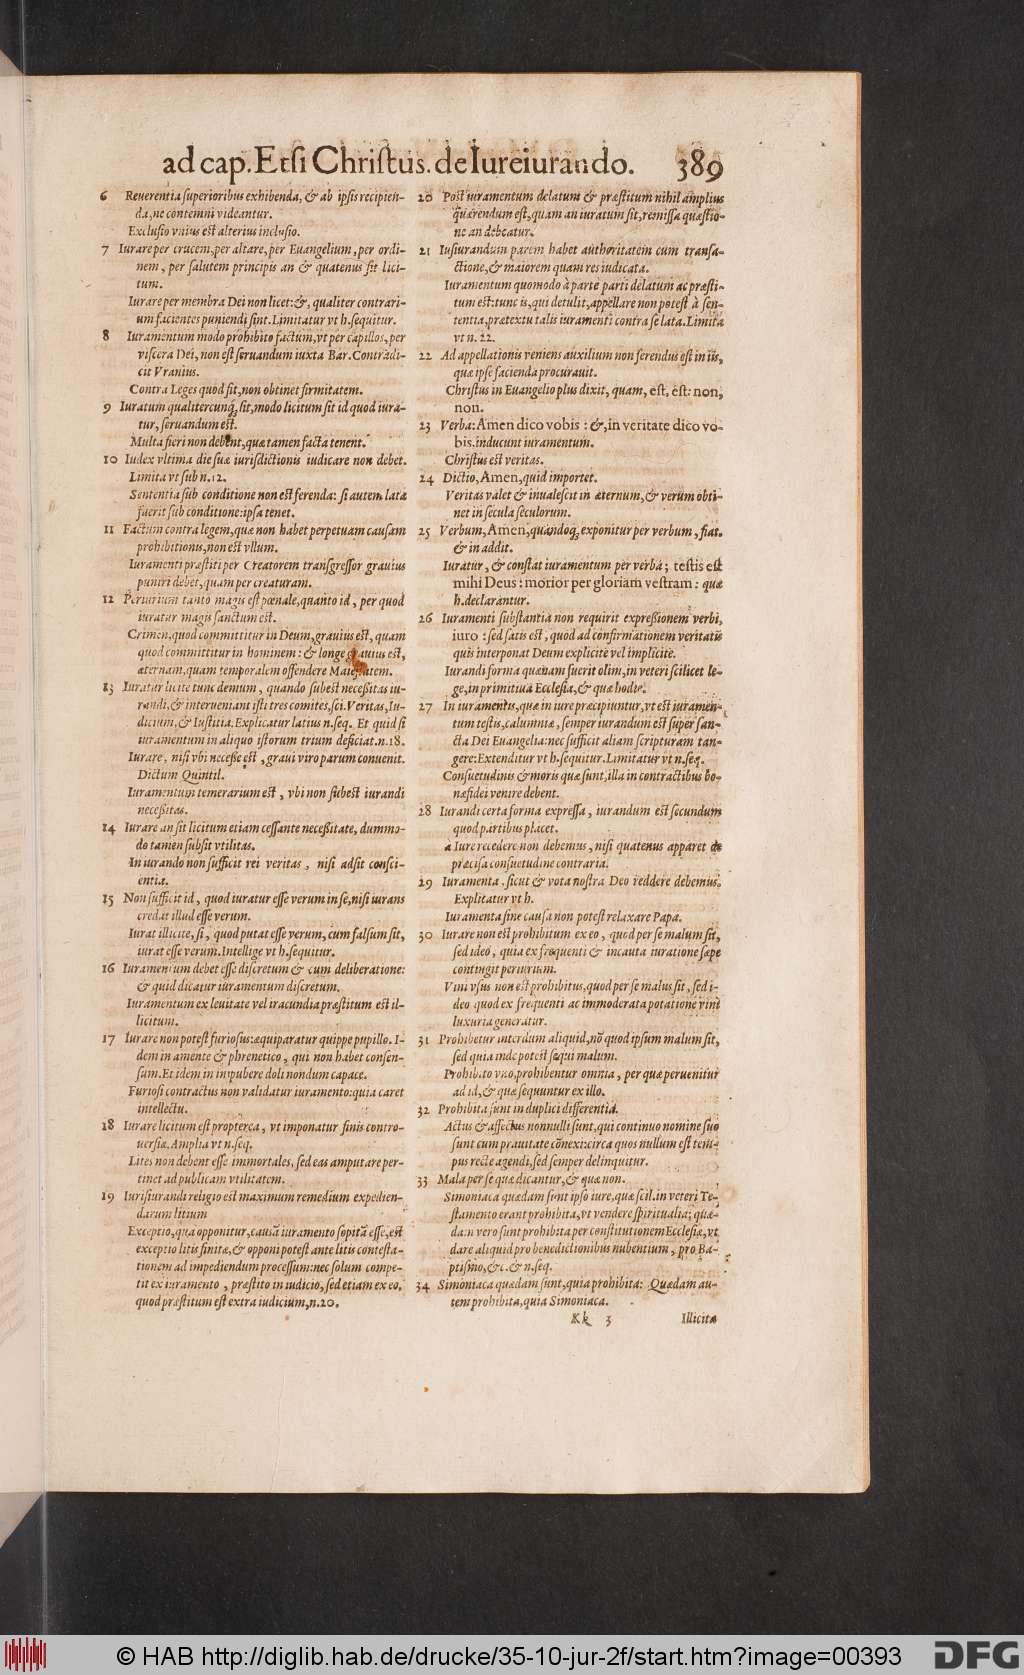 ad cap. Etsi Christus. de Iureiurando. 389
6 Reuerentia superioribus exhibenda, & ab ipsis recipien-
da, ne contemni videantur.
Exclusio vnius est alterius inclusio.
7 Iurare per crucem, per altare, per Euangelium, per ordi-
nem, per salutem principis an & quatenus sit lici-
tum.
Iurare per membra Dei non licet: &, qualiter contrari-
um facientes puniendi sint. Limitatur vt h. sequitur.
8 Iuramentum modo prohibito factum, vt per capillos, per
viscera Dei, non est seruandum iuxta Bar. Contradi-
cit Vranius.
Contra Leges quod sit, non obtinet firmitatem.
9 Iuratum qualitercunq; sit, modo licitum sit id quod iura-
tur, seruandum est.
Multa fieri non debent, quæ tamen facta tenent.
10 Iudex vltima die suæ iurisdictionis iudicare non debet.
Limita vt sub n. 12.
Sententia sub conditione non est ferenda: si autem lata
fuerit sub conditione: ipsa tenet.
11 Factum contra legem, quæ non habet perpetuam causam
prohibitionis, non est vllum.
Iuramenti præstiti per Creatorem transgressor grauius
puniri debet, quam per creaturam.
12 Periurium tanto magis est pœnale, quanto id, per quod
iuratur magis sanctum est.
Crimen, quod committitur in Deum, grauius est, quam
quod committitur in hominem: & longe grauius est,
æternam, quam temporalem offendere Maiestatem.
13 Iuratur licite tunc demum, quando subest necessitas iu-
randi, & interueniant isti tres comites, sci. Veritas, Iu-
dicium, & Iustitia. Explicatur latius n. seq. Et quid si
iuramentum in aliquo istorum trium deficiat. n. 18.
Iurare, nisi vbi necesse est, graui viro parum conuenit.
Dictum Quintil.
Iuramentum temerarium est, vbi non subest iurandi
necessitas.
14 Iurare an sit licitum etiam cessante necessitate, dummo-
do tamen subsit vtilitas.
In iurando non sufficit rei veritas, nisi adsit consci-
entia.
15 Non sufficit id, quod iuratur esse verum in se, nisi iurans
credat illud esse verum.
Iurat illicite, si, quod putat esse verum, cum falsum sit,
iurat esse verum. Intellige vt h. sequitur.
16 Iuramentum debet esse discretum & cum deliberatione:
& quid dicatur iuramentum discretum.
Iuramentum ex leuitate vel iracundia præstitum est il-
licitum.
17 Iurare non potest furiosus: æquiparatur quippe pupillo. I-
dem in amente & phrenetico, qui non habet consen-
sum. Et idem in impubere doli nondum capace.
Furiosi contractus non validatur iuramento: quia caret
intellectu.
18 Iurare licitum est propterea, vt imponatur finis contro-
uersiæ. Amplia vt n. seq.
Lites non debent esse immortales, sed eas amputare per-
tinet ad publicam vtilitatem.
19 Iurisiurandi religio est maximum remedium expedien-
darum litium
Exceptio, qua opponitur, causã iuramento sopitã esse, est
exceptio litis finitæ, & opponi potest ante litis contesta-
tionem ad impediendum processum: nec solum compe-
tit ex iuramento, præstito in iudicio, sed etiam ex eo,
quod præstitum est extra iudicium, n. 20.
20 Post iuramentum delatum & præstitum nihil amplius
quærendum est, quam an iuratum sit, remissa quæstio-
ne an debeatur.
21 Iusiurandum parem habet authoritatem cum transa-
ctione, & maiorem quam res iudicata.
Iuramentum quomodo à parte parti delatum ac præsti-
tum est: tunc is, qui detulit, appellare non potest à sen-
tentia, prætextu talis iuramenti contra se lata. Limita
vt n. 22.
22 Ad appellationis veniens auxilium non ferendus est in iis,
quæ ipse facienda procurauit.
Christus in Euangelio plus dixit, quam, est, est: non,
non.
23 Verba: Amen dico vobis: &, in veritate dico vo-
bis. inducunt iuramentum.
Christus est veritas.
24 Dictio, Amen, quid importet.
Veritas valet & inualescit in æternum, & verum obti-
net in secula seculorum.
25 Verbum, Amen, quandoq; exponitur per verbum, fiat.
& in addit.
Iuratur, & constat iuramentum per verba; testis est
mihi Deus: morior per gloriam vestram: quæ
h. declarantur.
26 Iuramenti substantia non requirit expressionem verbi,
iuro: sed satis est, quod ad confirmationem veritatis
quis interponat Deum explicite vel implicite.
Iurandi forma quænam fuerit olim, in veteri scilicet le-
ge, in primitiua Ecclesia, & quæ hodie.
27 In iuramentis, quæ in iure præcipiuntur, vt est iuramen-
tum testis, calumniæ, semper iurandum est super san-
cta Dei Euangelia: nec sufficit aliam scripturam tan-
gere: Extenditur vt h. sequitur. Limitatur vt n. seq.
Consuetudinis & moris quæ sunt, illa in contractibus bo-
næ fidei venire debent.
28 Iurandi certa forma expressa, iurandum est secundum
quod partibus placet.
a Iure recedere non debemus, nisi quatenus apparet de
præcisa consuetudine contraria.
29 Iuramenta, sicut & vota nostra Deo reddere debemus.
Explitatur vt h.
Iuramenta sine causa non potest relaxare Papa.
30 Iurare non est prohibitum ex eo, quod per se malum sit,
sed ideo, quia ex frequenti & incauta iuratione sæpe
contingit periurium.
Vini vsus non est prohibitus, quod per se malus sit, sed i-
deo quod ex frequenti ac immoderata potatione vini
luxuria generatur.
31 Prohibetur interdum aliquid, nõ quod ipsum malum sit,
sed quia inde potest sequi malum.
Prohibito vno, prohibentur omnia, per quæ peruenitur
ad id, & quæ sequuntur ex illo.
32 Prohibita sunt in duplici differentia.
Actus & affectus nonnulli sunt, qui continuo nomine suo
sunt cum prauitate cõnexi: circa quos nullum est tem-
pus recte agendi, sed semper delinquitur.
33 Mala per se quæ dicantur, & quæ non.
Simoniaca quædam sunt ipso iure, quæ scil. in veteri Te-
stamento erant prohibita, vt vendere spiritualia; quæ-
dam vero sunt prohibita per constitutionem Ecclesiæ, vt
dare aliquid pro benedictionibus nubentium, pro Ba-
ptismo, &c. & n. seq.
34 Simoniaca quædam sunt, quia prohibita: Quædam au-
tem prohibita, quia Simoniaca.
Kk 3 Illicita
© HAB http://diglib.hab.de/drucke/35-10-jur-2f/start.htm?image=00393 DFG